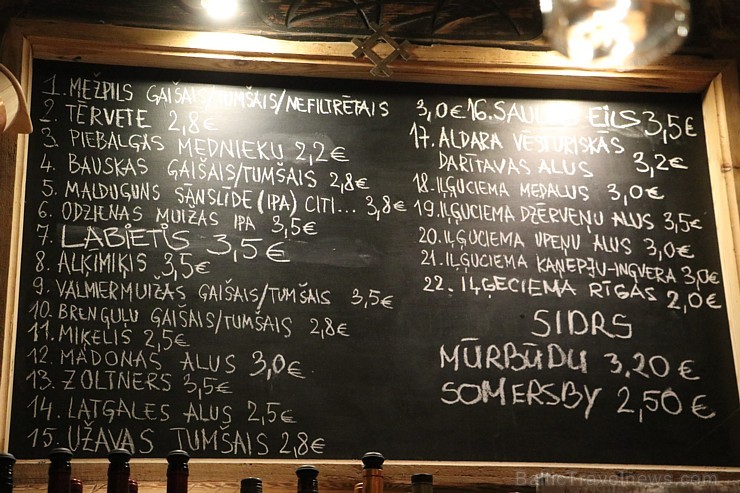 1. MEŽPILS GAIŠAIS/TUMŠAIS/NEFILTRĒTAIS 3,0€
2. TĒRVETE 2,8€
3. PIEBALGAS MEDNIEKU 2,2€
4. BAUSKAS GAIŠAIS/TUMŠAIS 2,8€
5. MALDUGUNS SĀNSLĪDE (IPA) CITI... 3,8€
6. ODZIENAS MUIŽAS IPA 3,5€
7. LABIETIS 3,5€
8. ALĶĪMIĶIS 3,5€
9. VALMIERMUIŽAS GAIŠAIS/TUMŠAIS 3,5€
10. BRENGUĻU GAIŠAIS/TUMŠAIS 2,8€
11. MIĶELIS 2,5€
12. MADONAS ALUS 3,0€
13. ZOLTNERS 3,5€
14. LATGALES ALUS 2,5€
15. UŽAVAS TUMŠAIS 2,8€
16. SAULES EILS 3,5€
17. ALDARA VĒSTURISKĀS
DARĪTAVAS ALUS 3,2€
18. IĻĢUCIEMA MEDALUS 3,0€
19. IĻĢUCIEMA DZĒRVEŅU ALUS 3,5€
20. IĻĢUCIEMA UPEŅU ALUS 3,0€
21. IĻĢUCIEMA KAŅEPJU-INGVERA 3,0€
22. IĻĢECIEMA RĪGAS 2,0€
SIDRS
MŪRBŪDU 3,20€
SOMERSBY 2,50€
BalticTravelnews.com